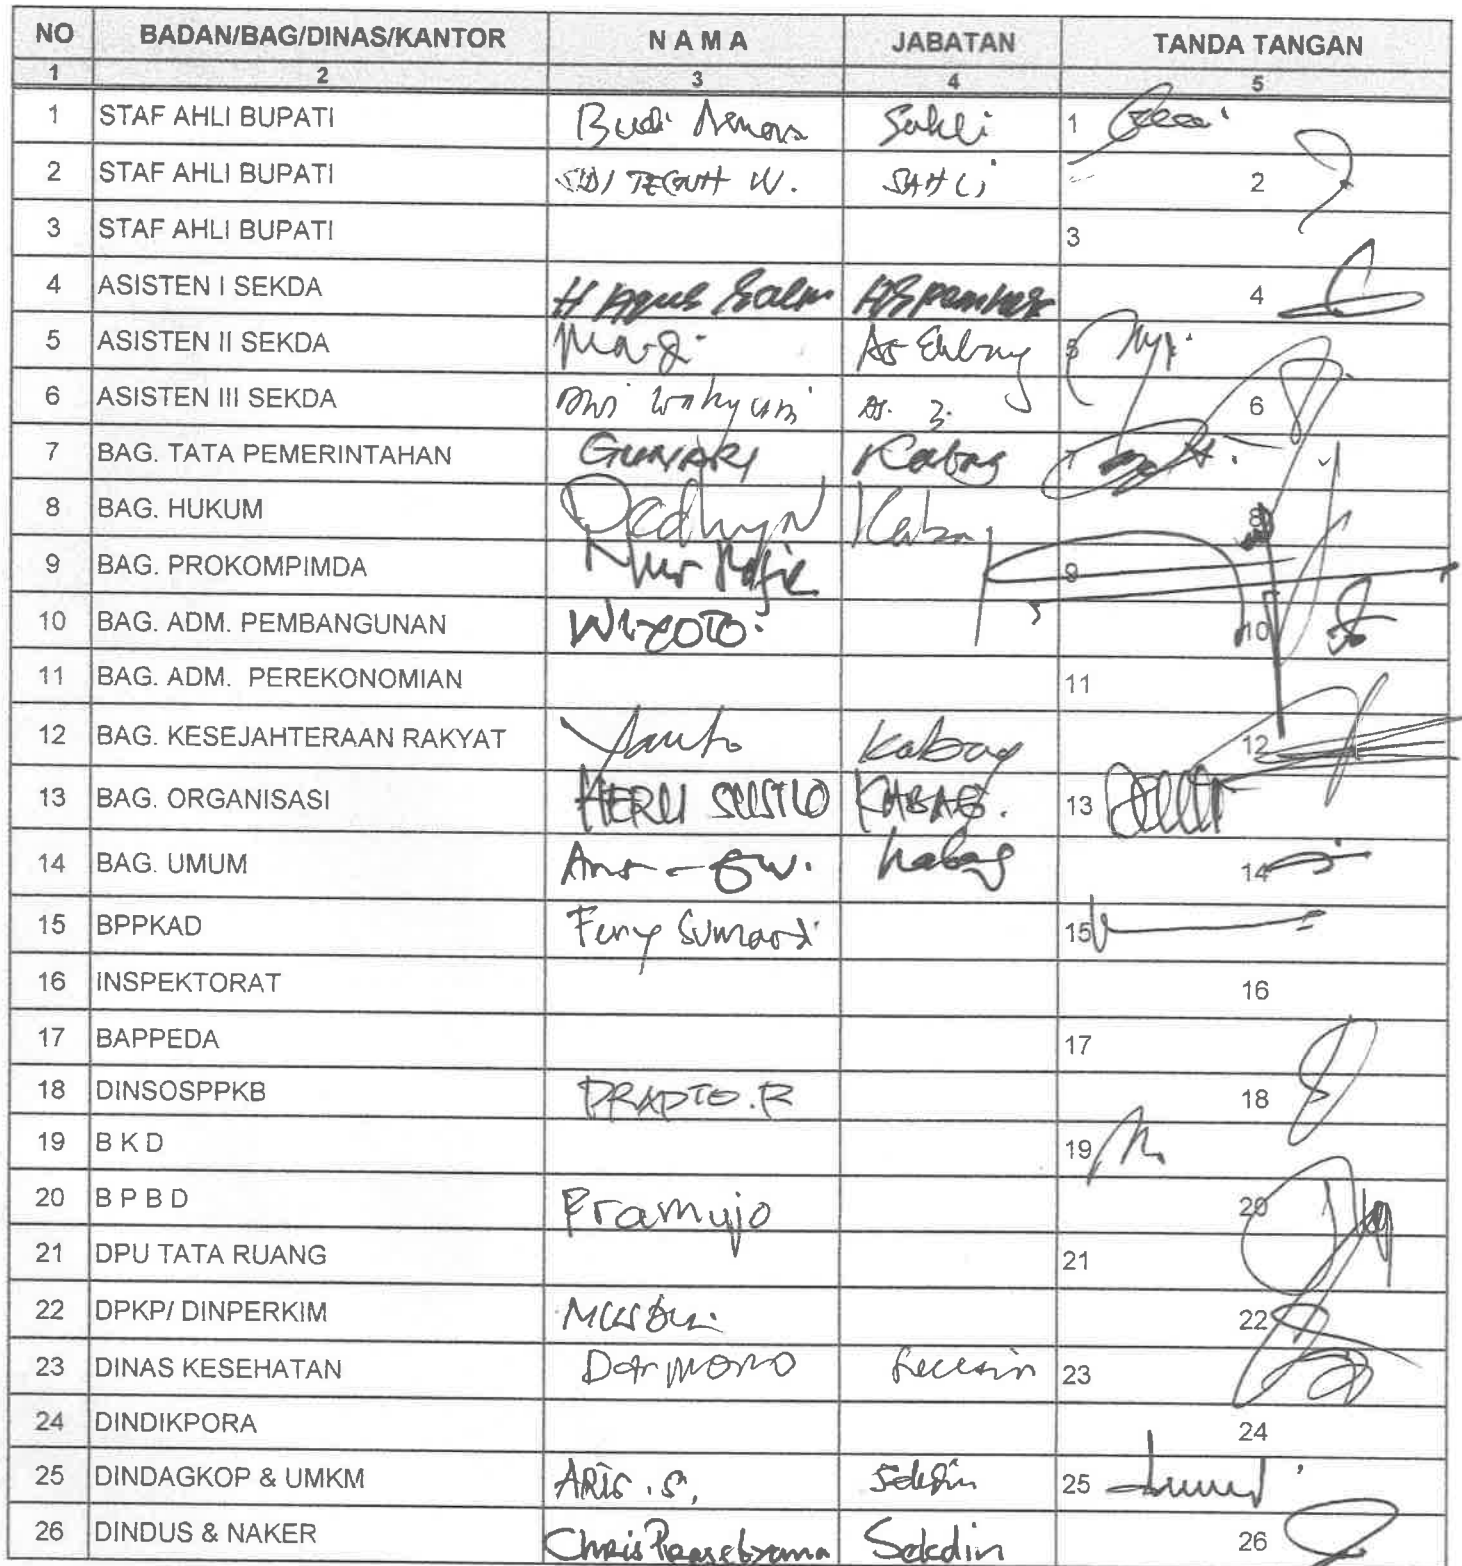 NO BADAN/BAG/DINAS/KANTOR N A M A JABATAN TANDA TANGAN
1 2 3 4 5
1 STAF AHLI BUPATI Budi Sahli 1
2 STAF AHLI BUPATI TEGUH W. SAHLI 2
3 STAF AHLI BUPATI 3
4 ASISTEN I SEKDA H Agus Salim 4
5 ASISTEN II SEKDA As Ekbang 5
6 ASISTEN III SEKDA Dwi Wahyuni As. 3. 6
7 BAG. TATA PEMERINTAHAN GUNARI Kabag 7
8 BAG. HUKUM 8
9 BAG. PROKOMPIMDA Nur 9
10 BAG. ADM. PEMBANGUNAN WIYOTO. 10
11 BAG. ADM. PEREKONOMIAN 11
12 BAG. KESEJAHTERAAN RAKYAT Yanto Kabag 12
13 BAG. ORGANISASI HERU SUSILO KABAG. 13
14 BAG. UMUM Kabag 14
15 BPPKAD Feny Sumardi 15
16 INSPEKTORAT 16
17 BAPPEDA 17
18 DINSOSPPKB PRAPTO.R 18
19 B K D 19
20 B P B D Pramujo 20
21 DPU TATA RUANG 21
22 DPKP/ DINPERKIM 22
23 DINAS KESEHATAN Darmono 23
24 DINDIKPORA 24
25 DINDAGKOP & UMKM ARIS .S, Sekdin 25
26 DINDUS & NAKER Chris Sekdin 26